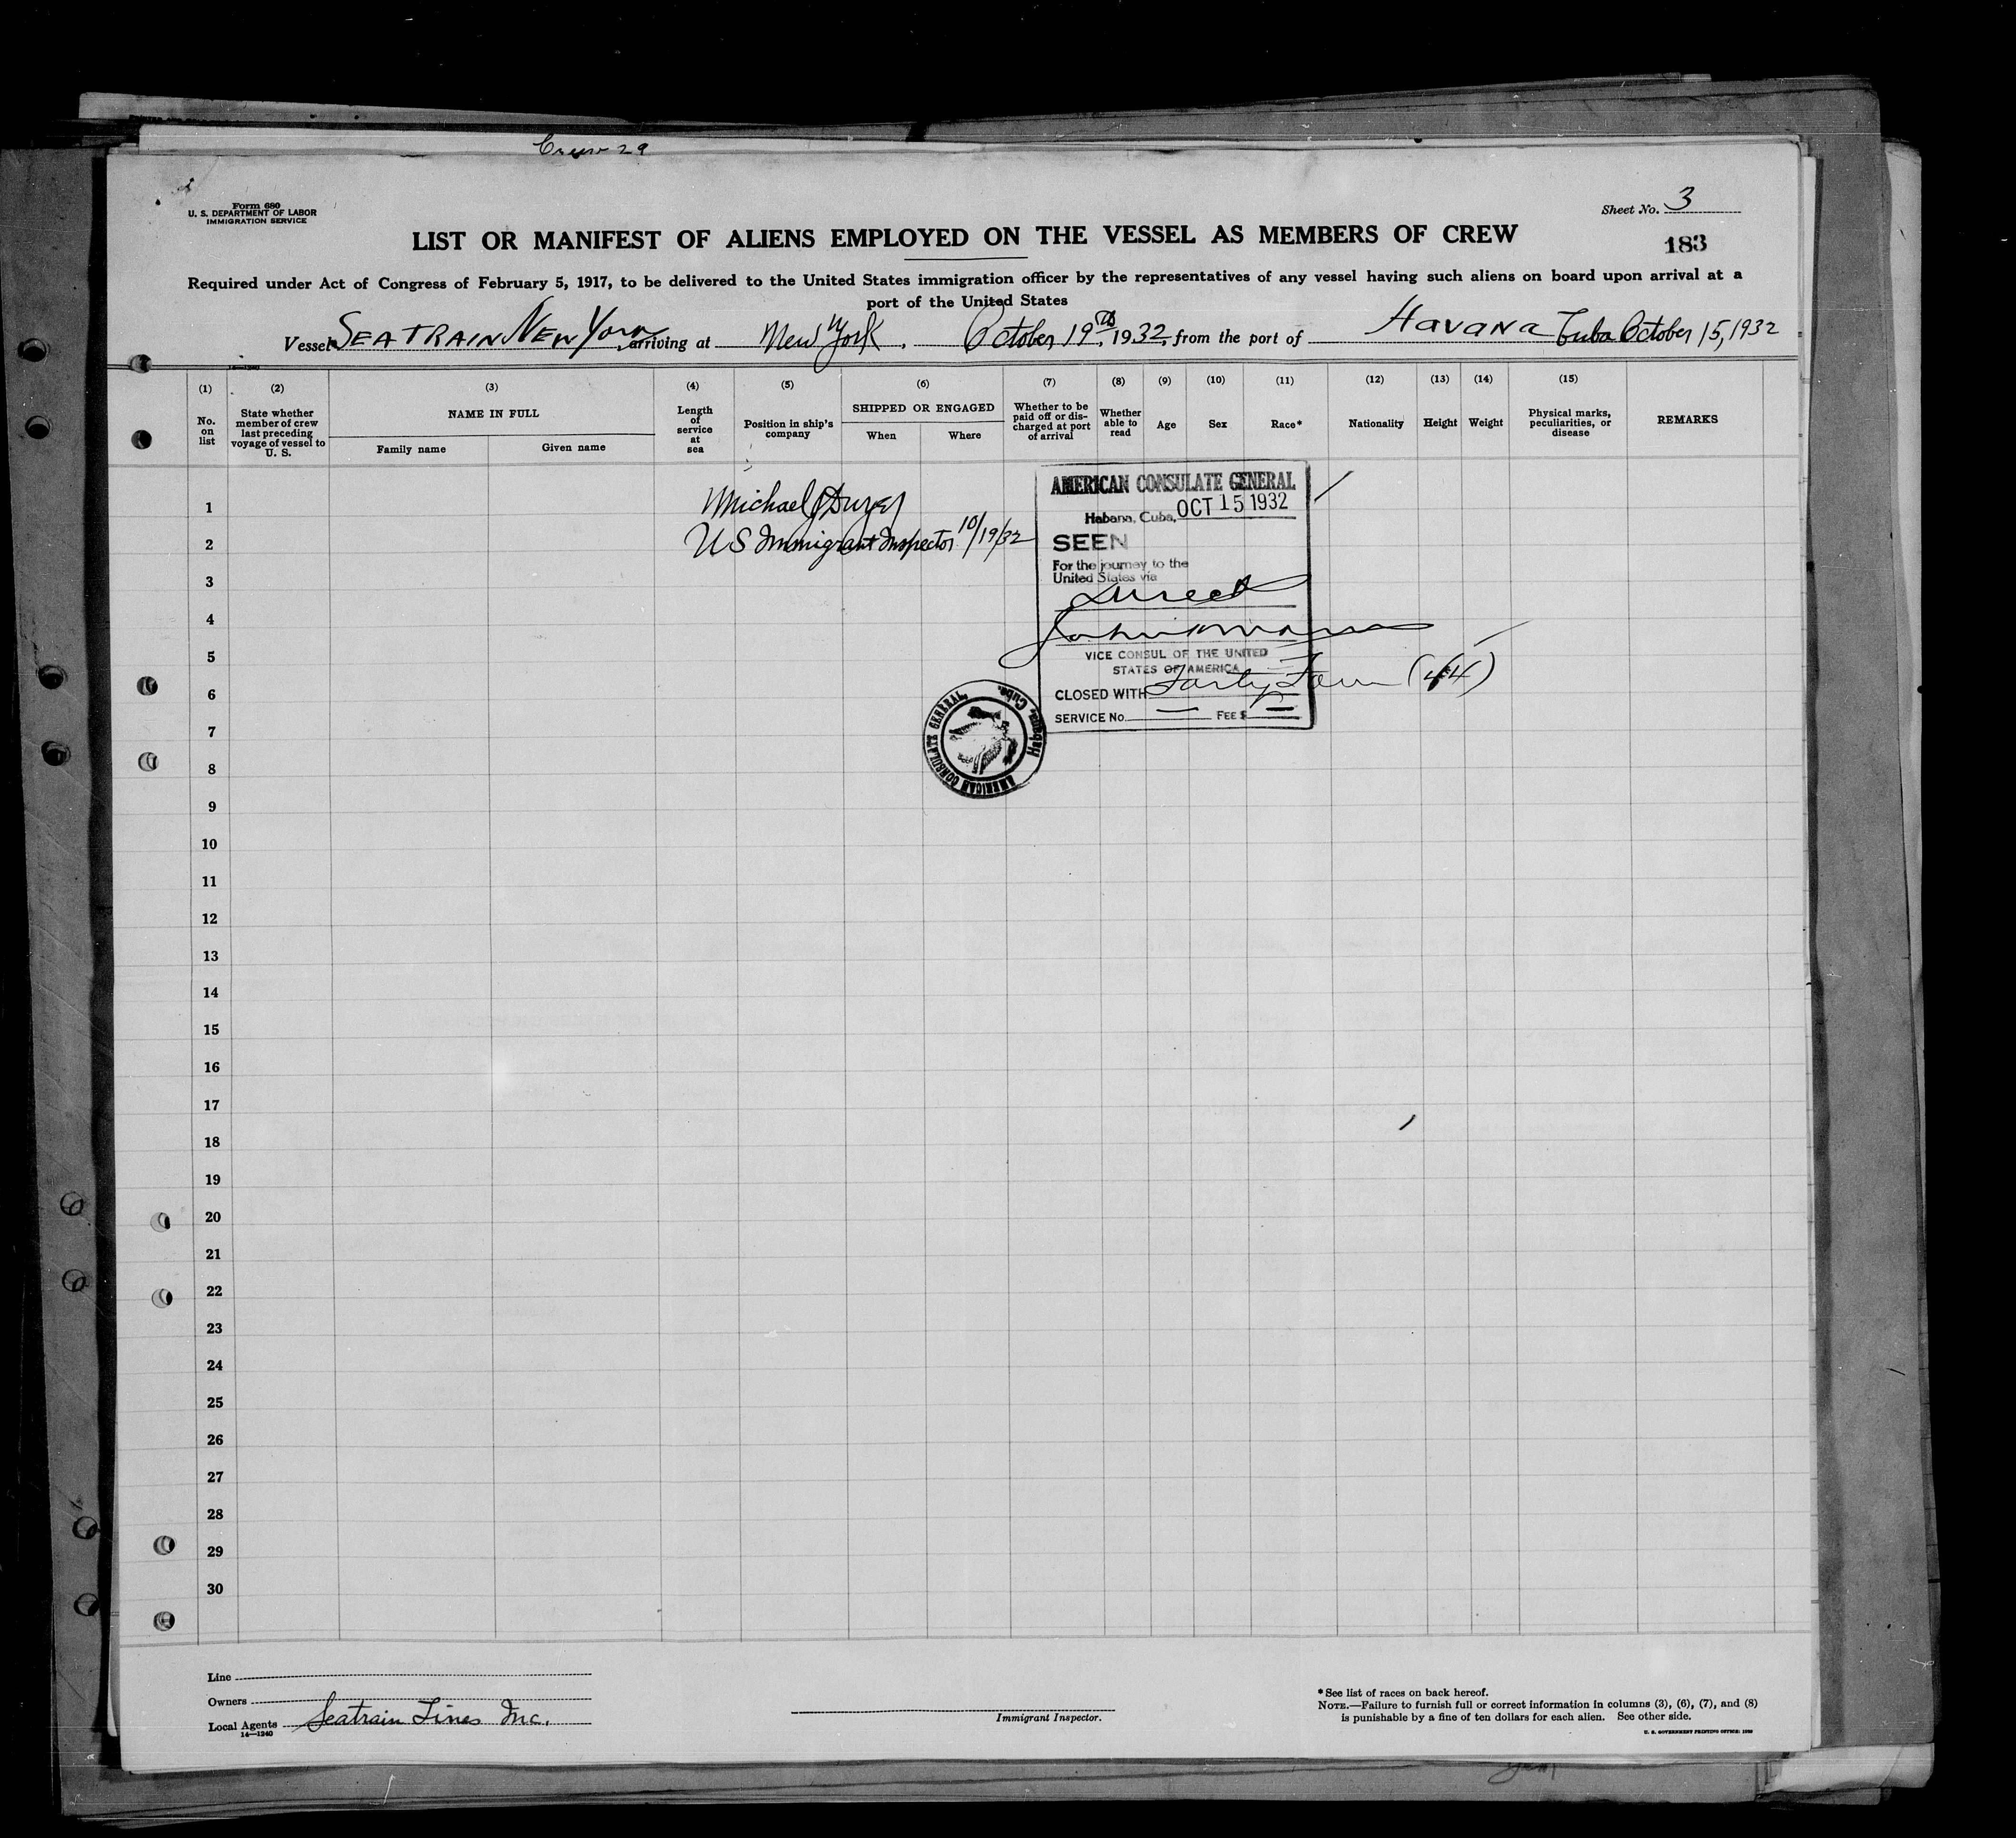 Crew 29
Form 680
U. S. DEPARTMENT OF LABOR
IMMIGRATION SERVICE
Sheet No. 3
183
LIST OR MANIFEST OF ALIENS EMPLOYED ON THE VESSEL AS MEMBERS OF CREW
Required under Act of Congress of February 5, 1917, to be delivered to the United States immigration officer by the representatives of any vessel having such aliens on board upon arrival at a
port of the United States
Vessel SEATRAIN NEW YORK, arriving at New York, October 19th, 1932, from the port of Havana Cuba October 15, 1932
(1) (2) (3) (4) (5) (6) (7) (8) (9) (10) (11) (12) (13) (14) (15)
No. on list
State whether member of crew last preceding voyage of vessel to U. S.
NAME IN FULL
Family name
Given name
Length of service at sea
Position in ship's company
SHIPPED OR ENGAGED
When
Where
Whether to be paid off or discharged at port of arrival
Whether able to read
Age
Sex
Race*
Nationality
Height
Weight
Physical marks, peculiarities, or disease
REMARKS
1
2
3
4
5
6
7
8
9
10
11
12
13
14
15
16
17
18
19
20
21
22
23
24
25
26
27
28
29
30
Michael J
US Immigrant Inspector 10/19/32
AMERICAN CONSULATE GENERAL
Habana, Cuba, OCT 15 1932
SEEN
For the journey to the
United States via
Direct
VICE CONSUL OF THE UNITED
STATES OF AMERICA
CLOSED WITH Forty Four (44)
SERVICE No. — FEE $ —
AMERICAN CONSULATE GENERAL, Habana, Cuba.
Line
Owners
Local Agents Seatrain Lines Inc.
14—1240
Immigrant Inspector.
* See list of races on back hereof.
NOTE.—Failure to furnish full or correct information in columns (3), (6), (7), and (8)
is punishable by a fine of ten dollars for each alien. See other side.